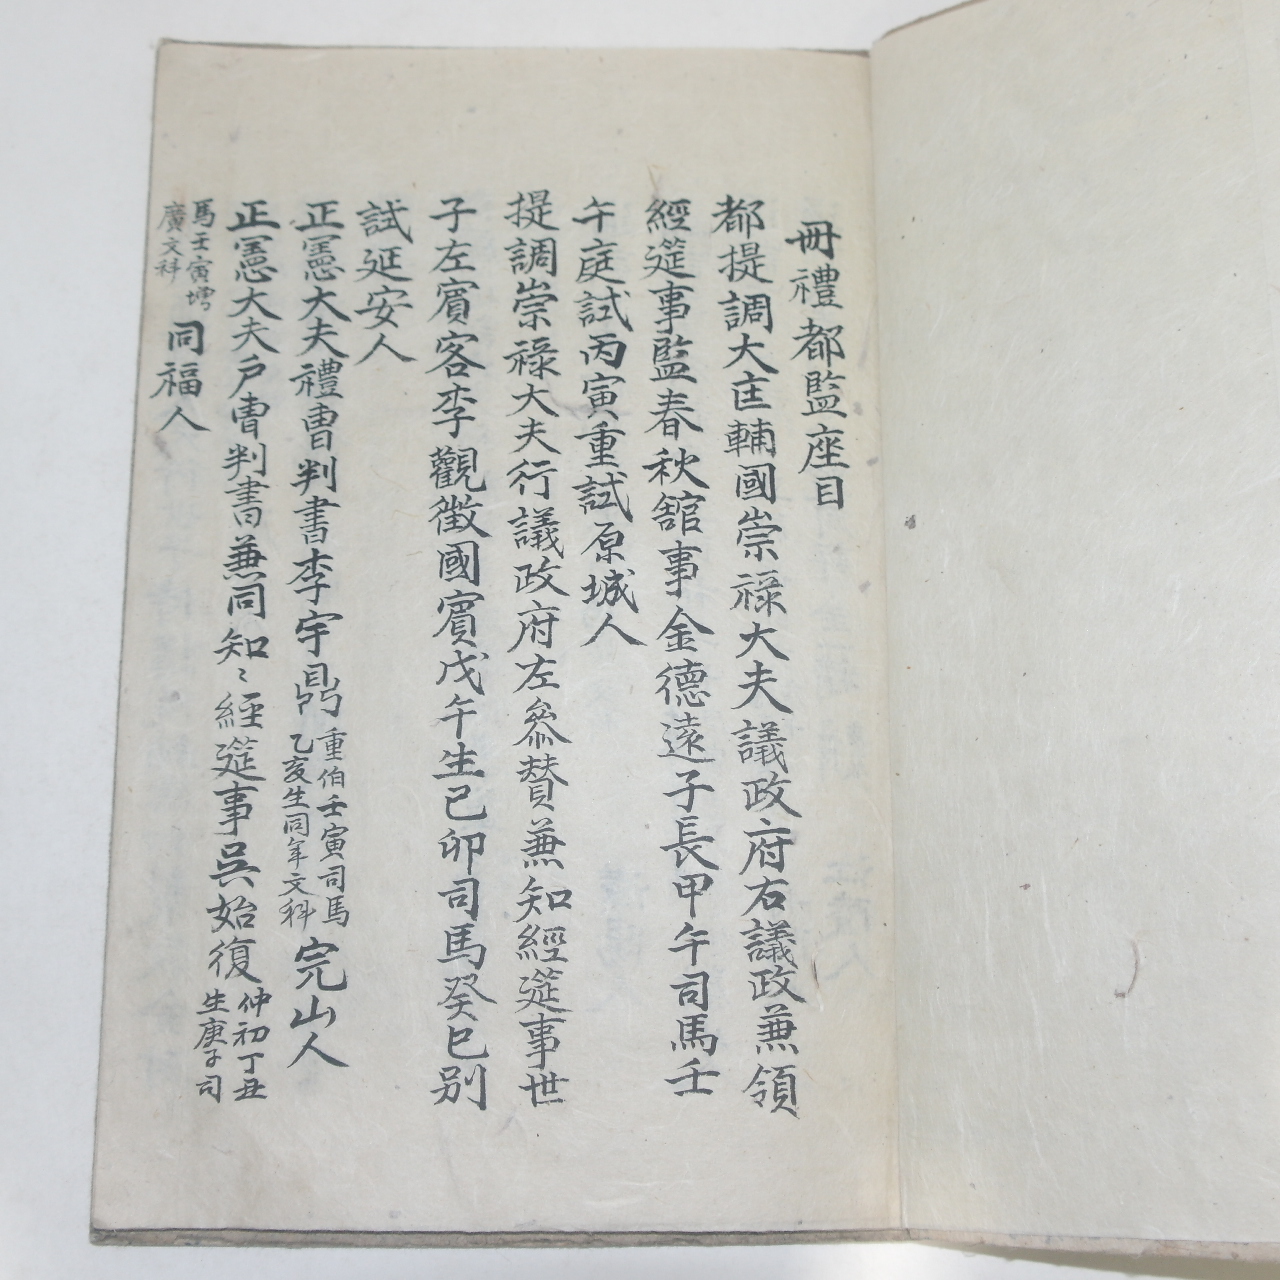 冊禮都監座目
都提調大匡輔國崇祿大夫議政府右議政兼領
經筵事監春秋舘事金德遠子長甲午司馬壬
午庭試丙寅重試原城人
提調崇祿大夫行議政府左參贊兼知經筵事世
子左賓客李觀徵國賓戊午生己卯司馬癸巳別
試延安人
正憲大夫禮曹判書李宇鼎重伯壬寅司馬乙亥生同年文科完山人
正憲大夫戶曹判書兼同知〻經筵事吳始復仲初丁丑生庚子司
馬壬寅增廣文科同福人